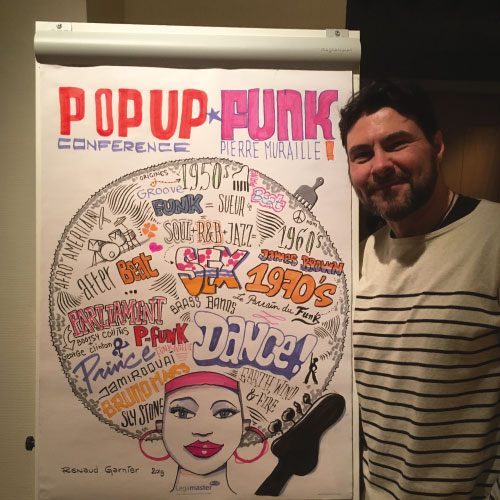 Legamaster
POPUP★FUNK
CONFERENCE
PIERRE MURAILLE !
ORIGINES
1950's
GROOVE
Beat
FUNK = SUEUR
AFRO AMERICAIN
SOUL + R&B + JAZZ =
1960's
AFTER Beat
...
SEX
JAMES BROWN
1970's
Le Parrain du Funk
BRASS BANDS
PARLIAMENT
BOOTSY COLLINS
P-FUNK
George Clinton
&
Prince
DANCE!
JAMIROQUAI
BRUNO MARS
EARTH, WIND
& FIRE
SLY STONE
Renaud Garnier
Legamaster